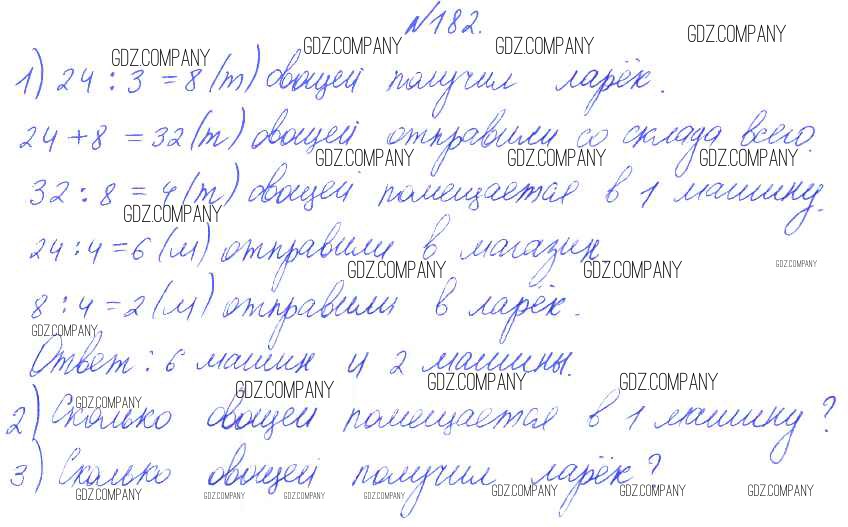 №182.
GDZ.COMPANY GDZ.COMPANY GDZ.COMPANY GDZ.COMPANY
1) 24 : 3 = 8 (т) овощей получил ларёк.
24 + 8 = 32 (т) овощей отправили со склада всего.
GDZ.COMPANY GDZ.COMPANY GDZ.COMPANY
32 : 8 = 4 (т) овощей помещается в 1 машину.
GDZ.COMPANY
24 : 4 = 6 (м) отправили в магазин
GDZ.COMPANY GDZ.COMPANY GDZ.COMPANY
8 : 4 = 2 (м) отправили в ларёк.
GDZ.COMPANY
Ответ: 6 машин и 2 машины.
GDZ.COMPANY GDZ.COMPANY GDZ.COMPANY GDZ.COMPANY
2) Сколько овощей помещается в 1 машину?
3) Сколько овощей получил ларёк?
GDZ.COMPANY GDZ.COMPANY GDZ.COMPANY GDZ.COMPANY GDZ.COMPANY GDZ.COMPANY GDZ.COMPANY